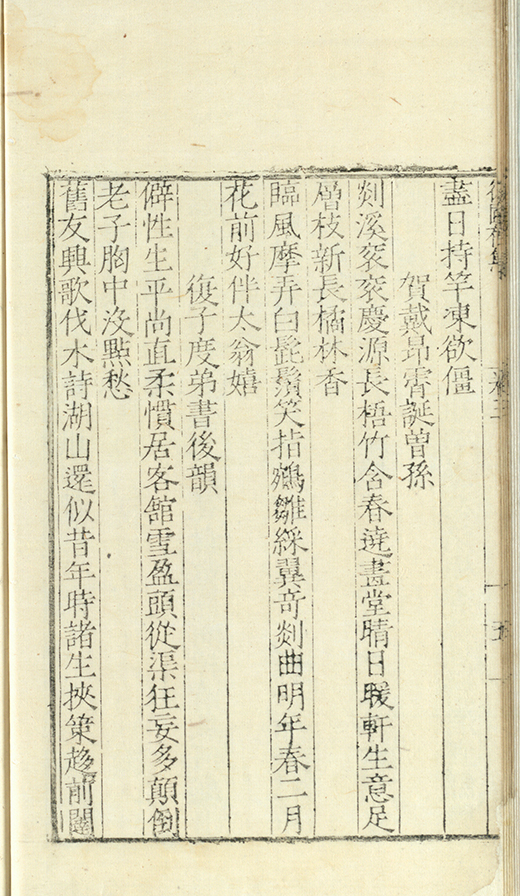 盡日持竿凍欲僵
賀戴昂霄誕曾孫
剡溪袞袞慶源長梧竹含春遶畫堂晴日暖軒生意足
僧枝新長橘林香
臨風摩弄白髭鬚笑指鵷雛綵翼奇剡曲明年春二月
花前好伴太翁嬉
復子度弟書後韻
僻性生平尚直柔慣居客舘雪盈頭從渠狂妄多顛倒
老子胸中沒點愁
舊友興歌伐木詩湖山還似昔年時諸生挾策趍前闥